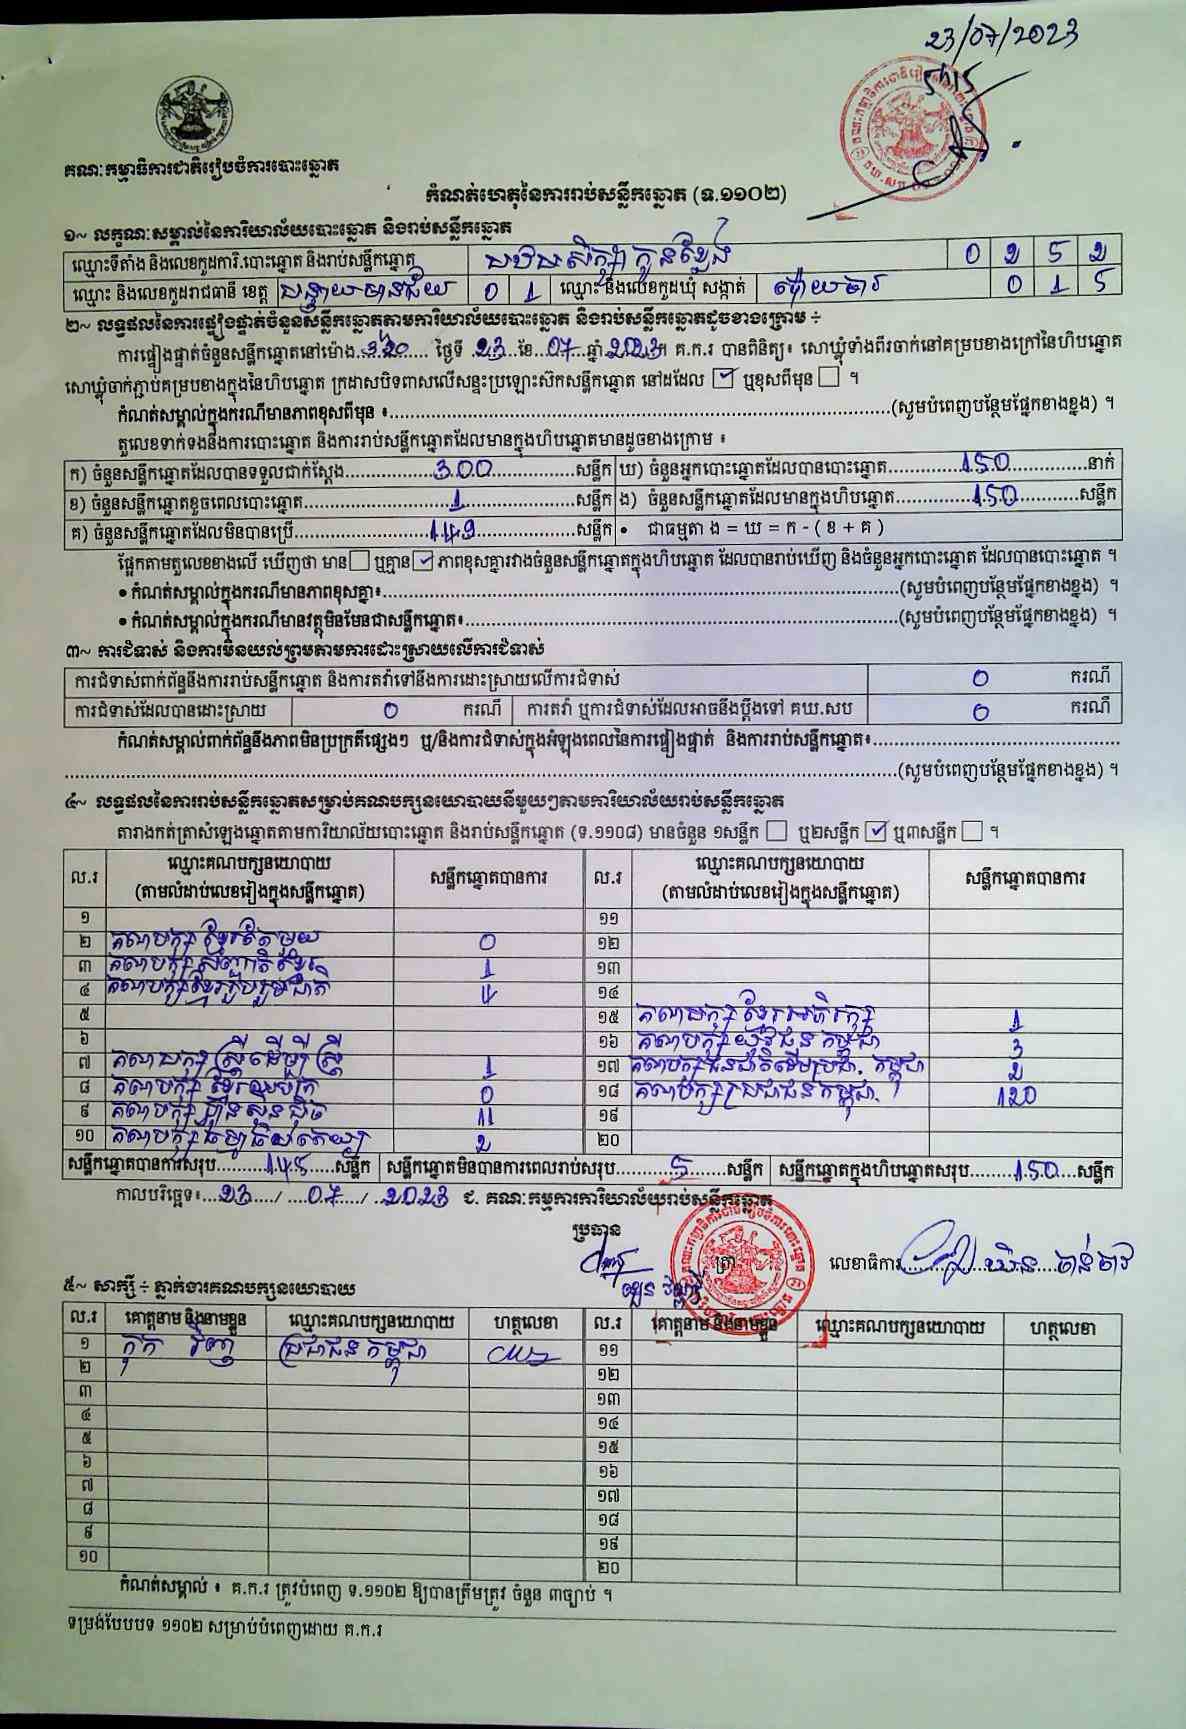 23/07/2023
គណៈកម្មាធិការជាតិរៀបចំការបោះឆ្នោត
កំណត់ហេតុនៃការរាប់សន្លឹកឆ្នោត (ទ.១១០២)
១~ លក្ខណៈសម្គាល់នៃការិយាល័យបោះឆ្នោត និងរាប់សន្លឹកឆ្នោត
ឈ្មោះទីតាំង និងលេខកូដការិ.បោះឆ្នោត និងរាប់សន្លឹកឆ្នោត បឋមសិក្សា កូនខ្លែង 0 2 5 2
ឈ្មោះ និងលេខកូដរាជធានី ខេត្ត បន្ទាយមានជ័យ 0 1 ឈ្មោះ និងលេខកូដឃុំ សង្កាត់ ប៉ោយចារ 0 1 5
២~ លទ្ធផលនៃការផ្ទៀងផ្ទាត់ចំនួនសន្លឹកឆ្នោតតាមការិយាល័យបោះឆ្នោត និងរាប់សន្លឹកឆ្នោតដូចខាងក្រោម ÷
ការផ្ទៀងផ្ទាត់ចំនួនសន្លឹកឆ្នោតនៅម៉ោង 3:20 ថ្ងៃទី 23 ខែ 07 ឆ្នាំ 2023 ។ គ.ក.រ បានពិនិត្យ៖ សោឃ្លុំទាំងពីរចាក់នៅគម្របខាងក្រៅនៃហិបឆ្នោត
សោឃ្លុំចាក់ភ្ជាប់គម្របខាងក្នុងនៃហិបឆ្នោត ក្រដាសបិទពាសលើសន្ទះប្រឡោះស៊កសន្លឹកឆ្នោត នៅដដែល ☑ ឬខុសពីមុន ☐ ។
កំណត់សម្គាល់ក្នុងករណីមានភាពខុសពីមុន ៖ (សូមបំពេញបន្ថែមផ្នែកខាងខ្នង) ។
តួលេខទាក់ទងនឹងការបោះឆ្នោត និងការរាប់សន្លឹកឆ្នោតដែលមានក្នុងហិបឆ្នោតមានដូចខាងក្រោម ៖
ក) ចំនួនសន្លឹកឆ្នោតដែលបានទទួលជាក់ស្តែង 300 សន្លឹក ឃ) ចំនួនអ្នកបោះឆ្នោតដែលបានបោះឆ្នោត 150 នាក់
ខ) ចំនួនសន្លឹកឆ្នោតខូចពេលបោះឆ្នោត 1 សន្លឹក ង) ចំនួនសន្លឹកឆ្នោតដែលមានក្នុងហិបឆ្នោត 150 សន្លឹក
គ) ចំនួនសន្លឹកឆ្នោតដែលមិនបានប្រើ 149 សន្លឹក • ជាធម្មតា ង = ឃ = ក - ( ខ + គ )
ផ្អែកតាមតួលេខខាងលើ ឃើញថា មាន ☐ ឬគ្មាន ☑ ភាពខុសគ្នារវាងចំនួនសន្លឹកឆ្នោតក្នុងហិបឆ្នោត ដែលបានរាប់ឃើញ និងចំនួនអ្នកបោះឆ្នោត ដែលបានបោះឆ្នោត ។
• កំណត់សម្គាល់ក្នុងករណីមានភាពខុសគ្នា៖ (សូមបំពេញបន្ថែមផ្នែកខាងខ្នង) ។
• កំណត់សម្គាល់ក្នុងករណីមានវត្ថុមិនមែនជាសន្លឹកឆ្នោត៖ (សូមបំពេញបន្ថែមផ្នែកខាងខ្នង) ។
៣~ ការជំទាស់ និងការមិនយល់ព្រមតាមការដោះស្រាយលើការជំទាស់
ការជំទាស់ពាក់ព័ន្ធនឹងការរាប់សន្លឹកឆ្នោត និងការតវ៉ាទៅនឹងការដោះស្រាយលើការជំទាស់ 0 ករណី
ការជំទាស់ដែលបានដោះស្រាយ 0 ករណី ការតវ៉ា ឬការជំទាស់ដែលអាចនឹងប្តឹងទៅ គឃ.សប 0 ករណី
កំណត់សម្គាល់ពាក់ព័ន្ធនឹងភាពមិនប្រក្រតីផ្សេងៗ ឬ/និងការជំទាស់ក្នុងអំឡុងពេលនៃការផ្ទៀងផ្ទាត់ និងការរាប់សន្លឹកឆ្នោត៖
(សូមបំពេញបន្ថែមផ្នែកខាងខ្នង) ។
៤~ លទ្ធផលនៃការរាប់សន្លឹកឆ្នោតសម្រាប់គណបក្សនយោបាយនីមួយៗតាមការិយាល័យរាប់សន្លឹកឆ្នោត
តារាងកត់ត្រាសំឡេងឆ្នោតតាមការិយាល័យបោះឆ្នោត និងរាប់សន្លឹកឆ្នោត (ទ.១១០៨) មានចំនួន ១សន្លឹក ☐ ឬ២សន្លឹក ☑ ឬ៣សន្លឹក ☐ ។
ល.រ ឈ្មោះគណបក្សនយោបាយ (តាមលំដាប់លេខរៀងក្នុងសន្លឹកឆ្នោត) សន្លឹកឆ្នោតបានការ ល.រ ឈ្មោះគណបក្សនយោបាយ (តាមលំដាប់លេខរៀងក្នុងសន្លឹកឆ្នោត) សន្លឹកឆ្នោតបានការ
១ ១១
២ គណបក្ស ខ្មែរតែមួយ 0 ១២
៣ គណបក្ស សញ្ជាតិខ្មែរ 1 ១៣
៤ គណបក្សខ្មែររួបរួមជាតិ 4 ១៤
៥ ១៥ គណបក្ស ខ្មែរអភិរក្ស 1
៦ ១៦ គណបក្ស យុវជនកម្ពុជា 3
៧ គណបក្ស ស្ត្រីដើម្បីស្ត្រី 1 ១៧ គណបក្សជនជាតិដើមប្រជា. កម្ពុជា 2
៨ គណបក្ស ខ្មែរឈប់ក្រ 0 ១៨ គណបក្សប្រជាជនកម្ពុជា 120
៩ គណបក្ស ហ្វ៊ុនស៊ិនប៉ិច 11 ១៩
១០ គណបក្ស ធម្មាធិបតេយ្យ 2 ២០
សន្លឹកឆ្នោតបានការសរុប 145 សន្លឹក សន្លឹកឆ្នោតមិនបានការពេលរាប់សរុប 5 សន្លឹក សន្លឹកឆ្នោតក្នុងហិបឆ្នោតសរុប 150 សន្លឹក
កាលបរិច្ឆេទ៖ 23 / 07 / 2023 ជ. គណៈកម្មការការិយាល័យរាប់សន្លឹកឆ្នោត
ប្រធាន
ត្រា លេខាធិការ
៥~ សាក្សី ÷ ភ្នាក់ងារគណបក្សនយោបាយ
ល.រ គោត្តនាម និងនាមខ្លួន ឈ្មោះគណបក្សនយោបាយ ហត្ថលេខា ល.រ គោត្តនាម និងនាមខ្លួន ឈ្មោះគណបក្សនយោបាយ ហត្ថលេខា
១ ប្រជាជនកម្ពុជា ១១
២ ១២
៣ ១៣
៤ ១៤
៥ ១៥
៦ ១៦
៧ ១៧
៨ ១៨
៩ ១៩
១០ ២០
កំណត់សម្គាល់ ៖ គ.ក.រ ត្រូវបំពេញ ទ.១១០២ ឱ្យបានត្រឹមត្រូវ ចំនួន ៣ច្បាប់ ។
ទម្រង់បែបបទ ១១០២ សម្រាប់បំពេញដោយ គ.ក.រ